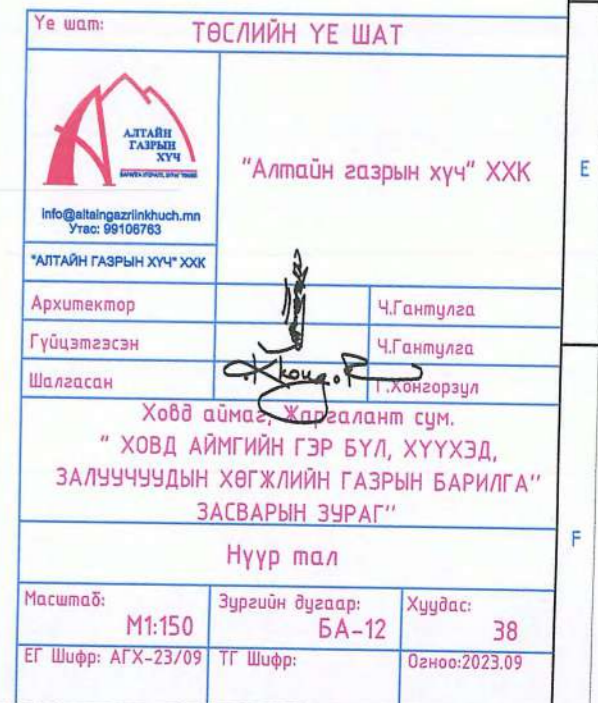 Үе шат:
ТӨСЛИЙН ҮЕ ШАТ
АЛТАЙН
ГАЗРЫН
ХҮЧ
info@altaingazriinkhuch.mn
Утас: 99106763
"АЛТАЙН ГАЗРЫН ХҮЧ" ХХК
"Алтайн газрын хүч" ХХК
E
Архитектор
Ч.Гантулга
Гүйцэтгэсэн
Ч.Гантулга
Шалгасан
Г.Хонгорзул
Ховд аймаг, Жаргалант сум.
" ХОВД АЙМГИЙН ГЭР БҮЛ, ХҮҮХЭД,
ЗАЛУУЧУУДЫН ХӨГЖЛИЙН ГАЗРЫН БАРИЛГА"
ЗАСВАРЫН ЗУРАГ"
F
Нүүр тал
Масштаб:
М1:150
Зургийн дугаар:
БА-12
Хуудас:
38
ЕГ Шифр: АГХ-23/09
ТГ Шифр:
Огноо:2023.09